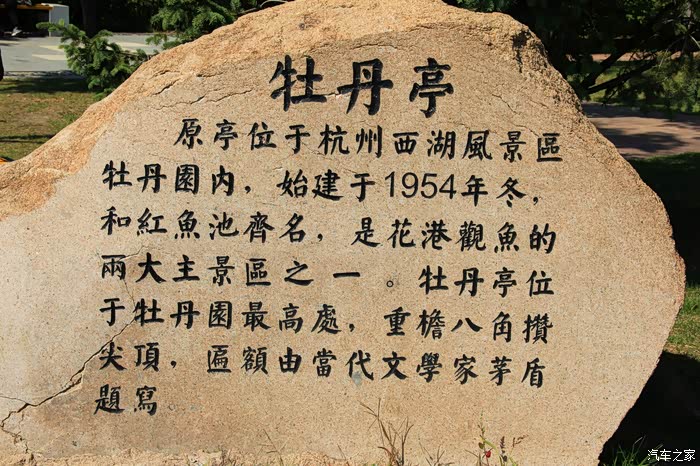 牡丹亭
原亭位于杭州西湖風景區
牡丹園内，始建于1954年冬，
和紅魚池齊名，是花港觀魚的
兩大主景區之一。牡丹亭位
于牡丹園最高處，重檐八角攢
尖頂，匾額由當代文學家茅盾
題寫
汽车之家